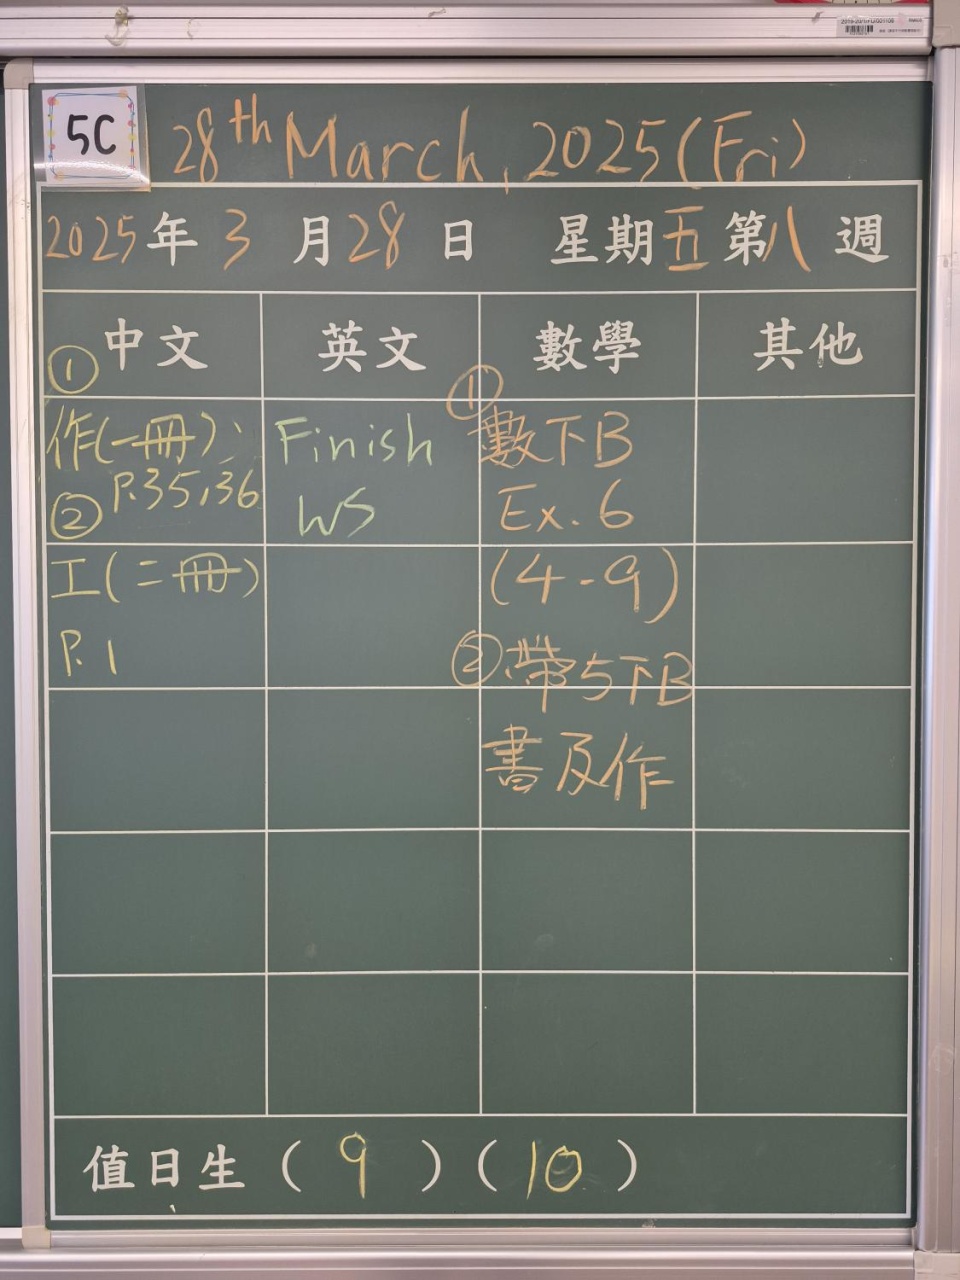 5C
28th March, 2025 (Fri)
2025年3月28日 星期五第八週
中文 英文 數學 其他
① 作(一冊):
P.35,36
② 工(二冊)
P.1
Finish
WS
① 數下B
Ex. 6
(4-9)
② 帶5下B
書及作
值日生 (9) (10)